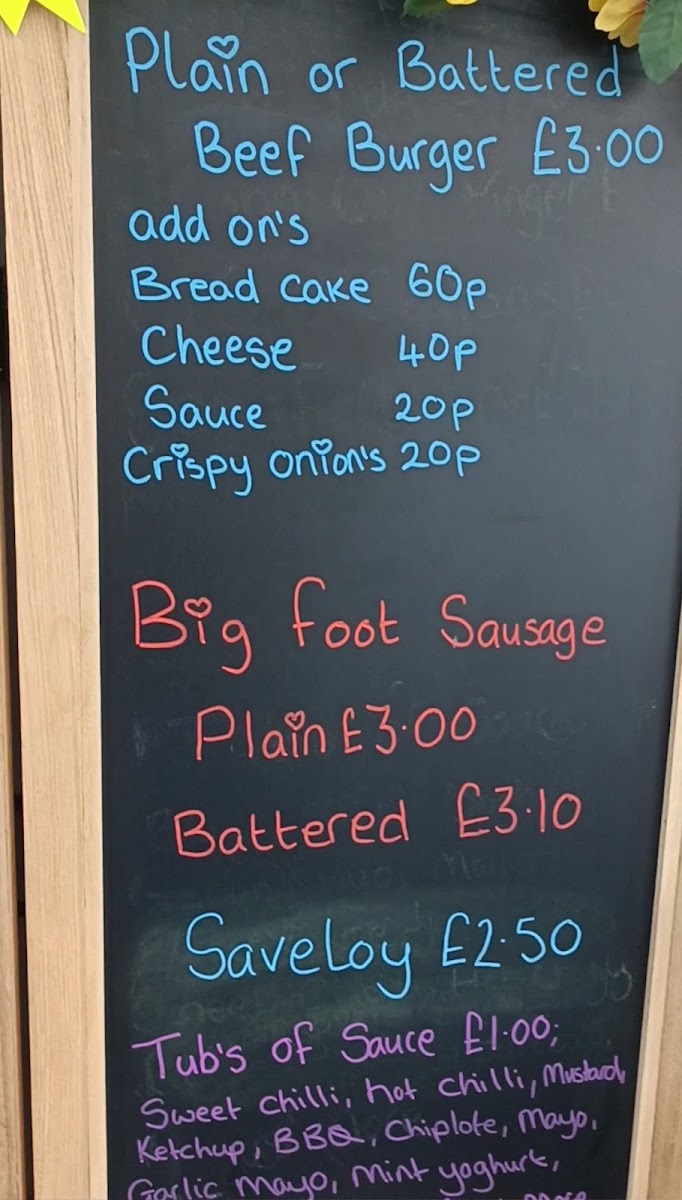 Plain or Battered
Beef Burger £3.00
add on's
Bread cake 60p
Cheese 40p
Sauce 20p
Crispy onion's 20p
Big foot Sausage
Plain £3.00
Battered £3.10
Saveloy £2.50
Tub's of Sauce £1.00;
Sweet chilli, hot chilli, Mustard,
Ketchup, BBQ, Chiplote, Mayo,
Garlic Mayo, Mint yoghurt,